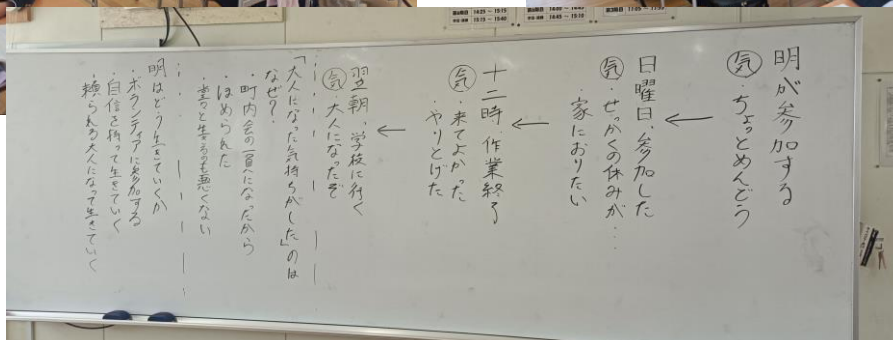 明が参加する
気・ちょっとめんどう
日曜日、参加した
気・せっかくの休みが...
・家におりたい
十二時、作業終了
気・来てよかった
・やりとげた
翌朝、学校に行く
気・大人になったぞ
「大人になった気持ちがした」のは
なぜ?
・町内会の一員になったから
・ほめられた
・堂々と生きるのも悪くない
明はどう生きていくか
・ボランティアに参加する
・自信を持って生きていく
・頼られる大人になって生きていく